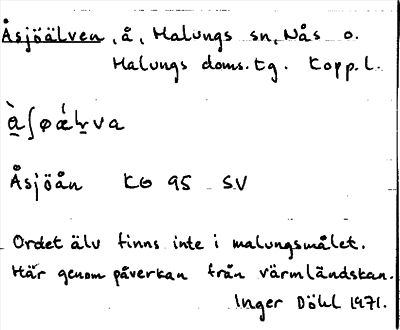 Åsjöälven, å, Malungs sn, Nås o.
Malungs doms. tg. Kopp. l.
Åsjöån KG 95 SV
Ordet älv finns inte i malungsmålet.
Här genom påverkan från värmländskan.
Inger Döhl 1971.